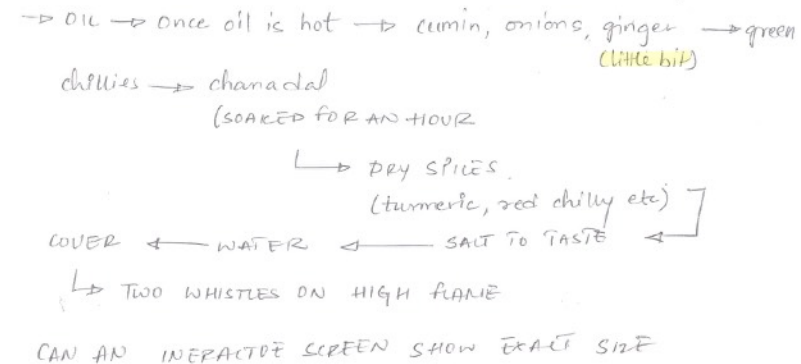 → OIL → Once oil is hot → cumin, onions, ginger → green
(little bit)
chillies → chanadal
(SOAKED FOR AN HOUR
↳ DRY SPICES.
(turmeric, red chilly etc)
COVER ← WATER ← SALT TO TASTE ←
↳ TWO WHISTLES ON HIGH FLAME
CAN AN INERACTOE SCREEN SHOW EXACT SIZE